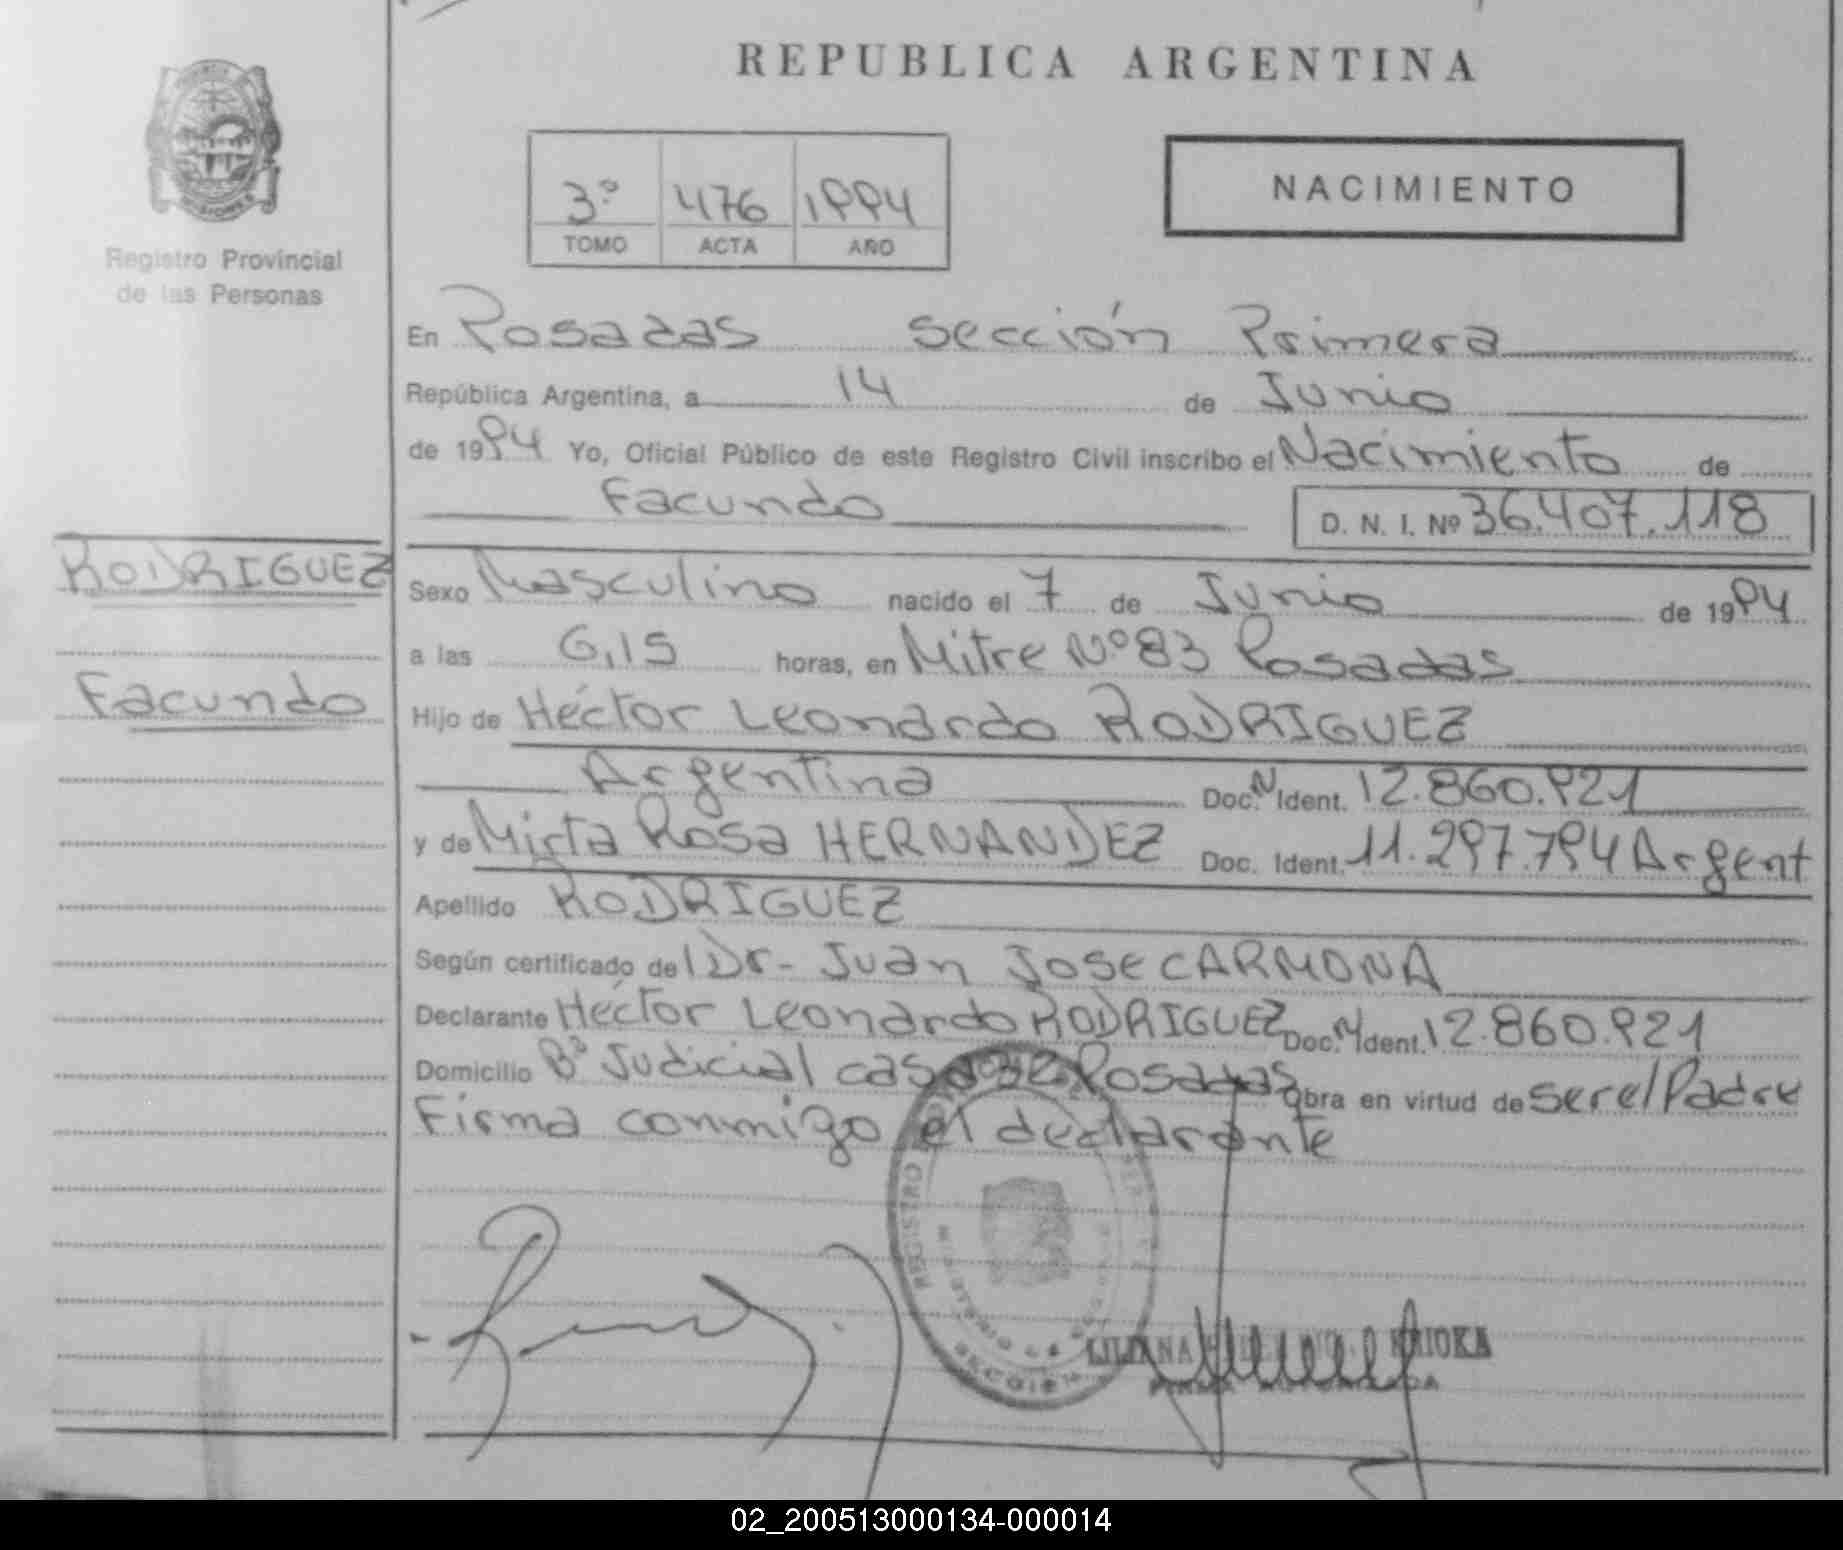 REPUBLICA ARGENTINA
MISIONES
Registro Provincial
de las Personas
3º 476 1994
TOMO ACTA AÑO
NACIMIENTO
En Posadas sección Primera
República Argentina, a 14 de Junio
de 1994 Yo, Oficial Público de este Registro Civil inscribo el Nacimiento de
Facundo
D. N. I. Nº 36.407.118
RODRIGUEZ
Facundo
Sexo Masculino nacido el 7 de Junio de 1994
a las 6,15 horas, en Mitre Nº 83 Posadas
Hijo de Héctor Leonardo RODRIGUEZ
Argentina Doc. N Ident. 12.860.921
y de Mirta Rosa HERNANDEZ Doc. Ident. 11.297.794 Argent
Apellido RODRIGUEZ
Según certificado del Dr- Juan Jose CARMONA
Declarante Héctor Leonardo RODRIGUEZ Doc. N Ident. 12.860.921
Domicilio Bº Judicial casa 32 Posadas Obra en virtud de ser el Padre
Firma conmigo el declarante
REGISTRO
SECCION
LILIANA
FIRMA AUTORIZADA
02_200513000134-000014